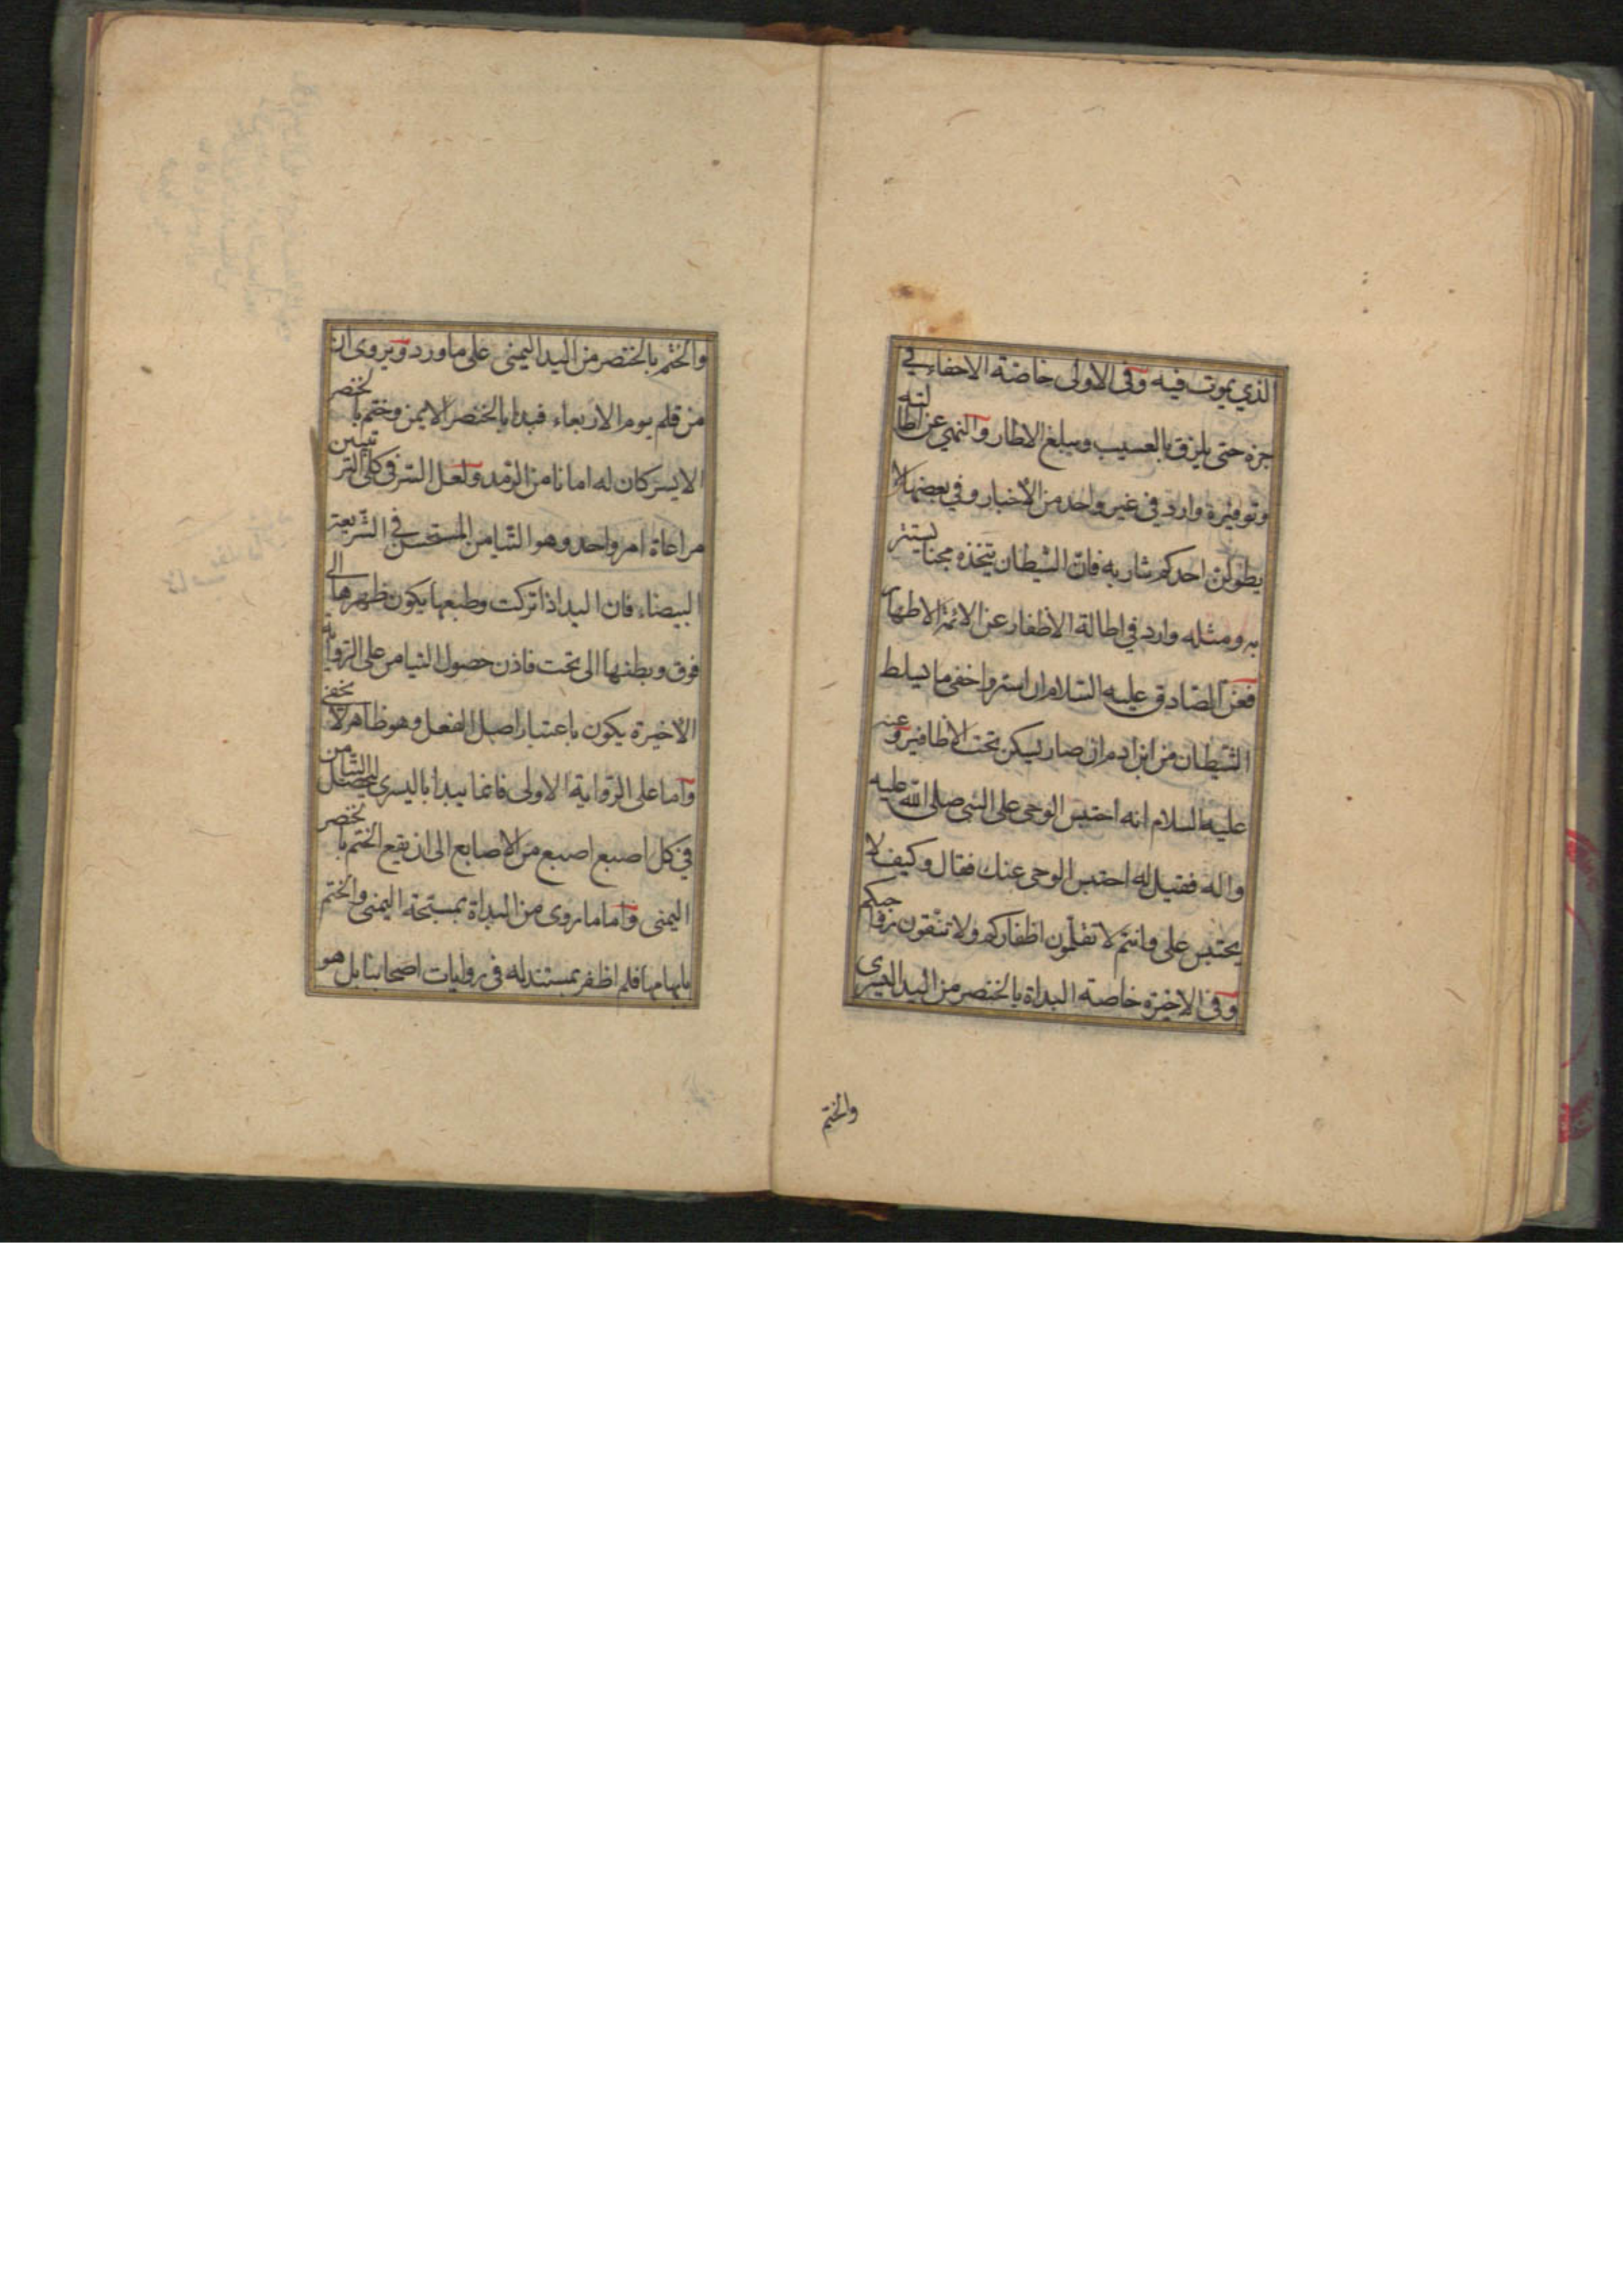 الذي يموت فيه وفى الاولى خاصة الاحفاء في
جزه حتى يلزق بالعسيب ويبلغ الاطار والنهي عن اطالته
وتوفيره وارد في غير واحد من الاخبار وفي بعضها لا
يطولن احدكم شاربه فان الشيطان يتخذه مجنا يستتر
به ومثله وارد في اطالة الاظفار عن الائمة الاطهار
فعن الصادق عليه السلام ان استر واخفى ما يسلط
الشيطان من ابن ادم ان صار يسكن تحت الاظافير وعنه
عليه السلام انه احتبس الوحى على النبى صلى الله عليه
واله فقيل له احتبس الوحى عنك فقال وكيف لا
يحتبس على وانتم لا تقلمون اظفاركم ولا تنقون رواجبكم
وفى الاخيرة خاصة البداة بالخنصر من اليد اليسرى
والختم
والختم بالخنصر من اليد اليمنى على ما ورد ويروى ان
من قلم يوم الاربعاء فبدا بالخنصر الايمن وختم بالخنصر
الايسر كان له امانا من الرمد ولعل السر في كلى الترتيبين
مراعاة امر واحد وهو التيامن المستحسن في الشريعة
البيضاء فان اليد اذا تركت وطبعها يكون ظهرها الى
فوق وبطنها الى تحت فاذن حصول التيامن على الرواية
الاخيرة يكون باعتبار اصل الفعل وهو ظاهر لا يخفى
واما على الرواية الاولى فانما يبدا باليسرى ليحصل التيامن
في كل اصبع اصبع من الاصابع الى ان يقع الختم بالخنصر
اليمنى واما ما روى من البداة بمسبحة اليمنى والختم
بابهامها فلم اظفر بمستند له فى روايات اصحابنا بل هو